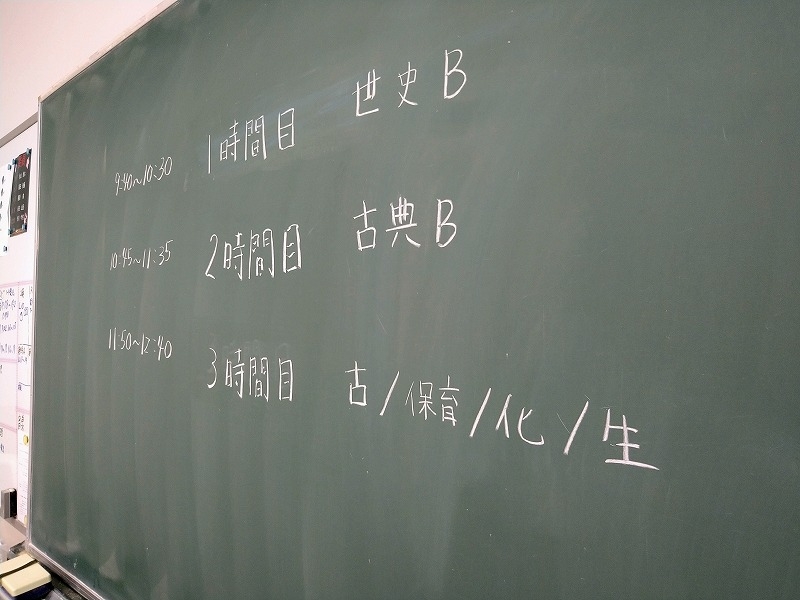 9:40~10:30 1時間目 世史B
10:45~11:35 2時間目 古典B
11:50~12:40 3時間目 古/保育/化/生